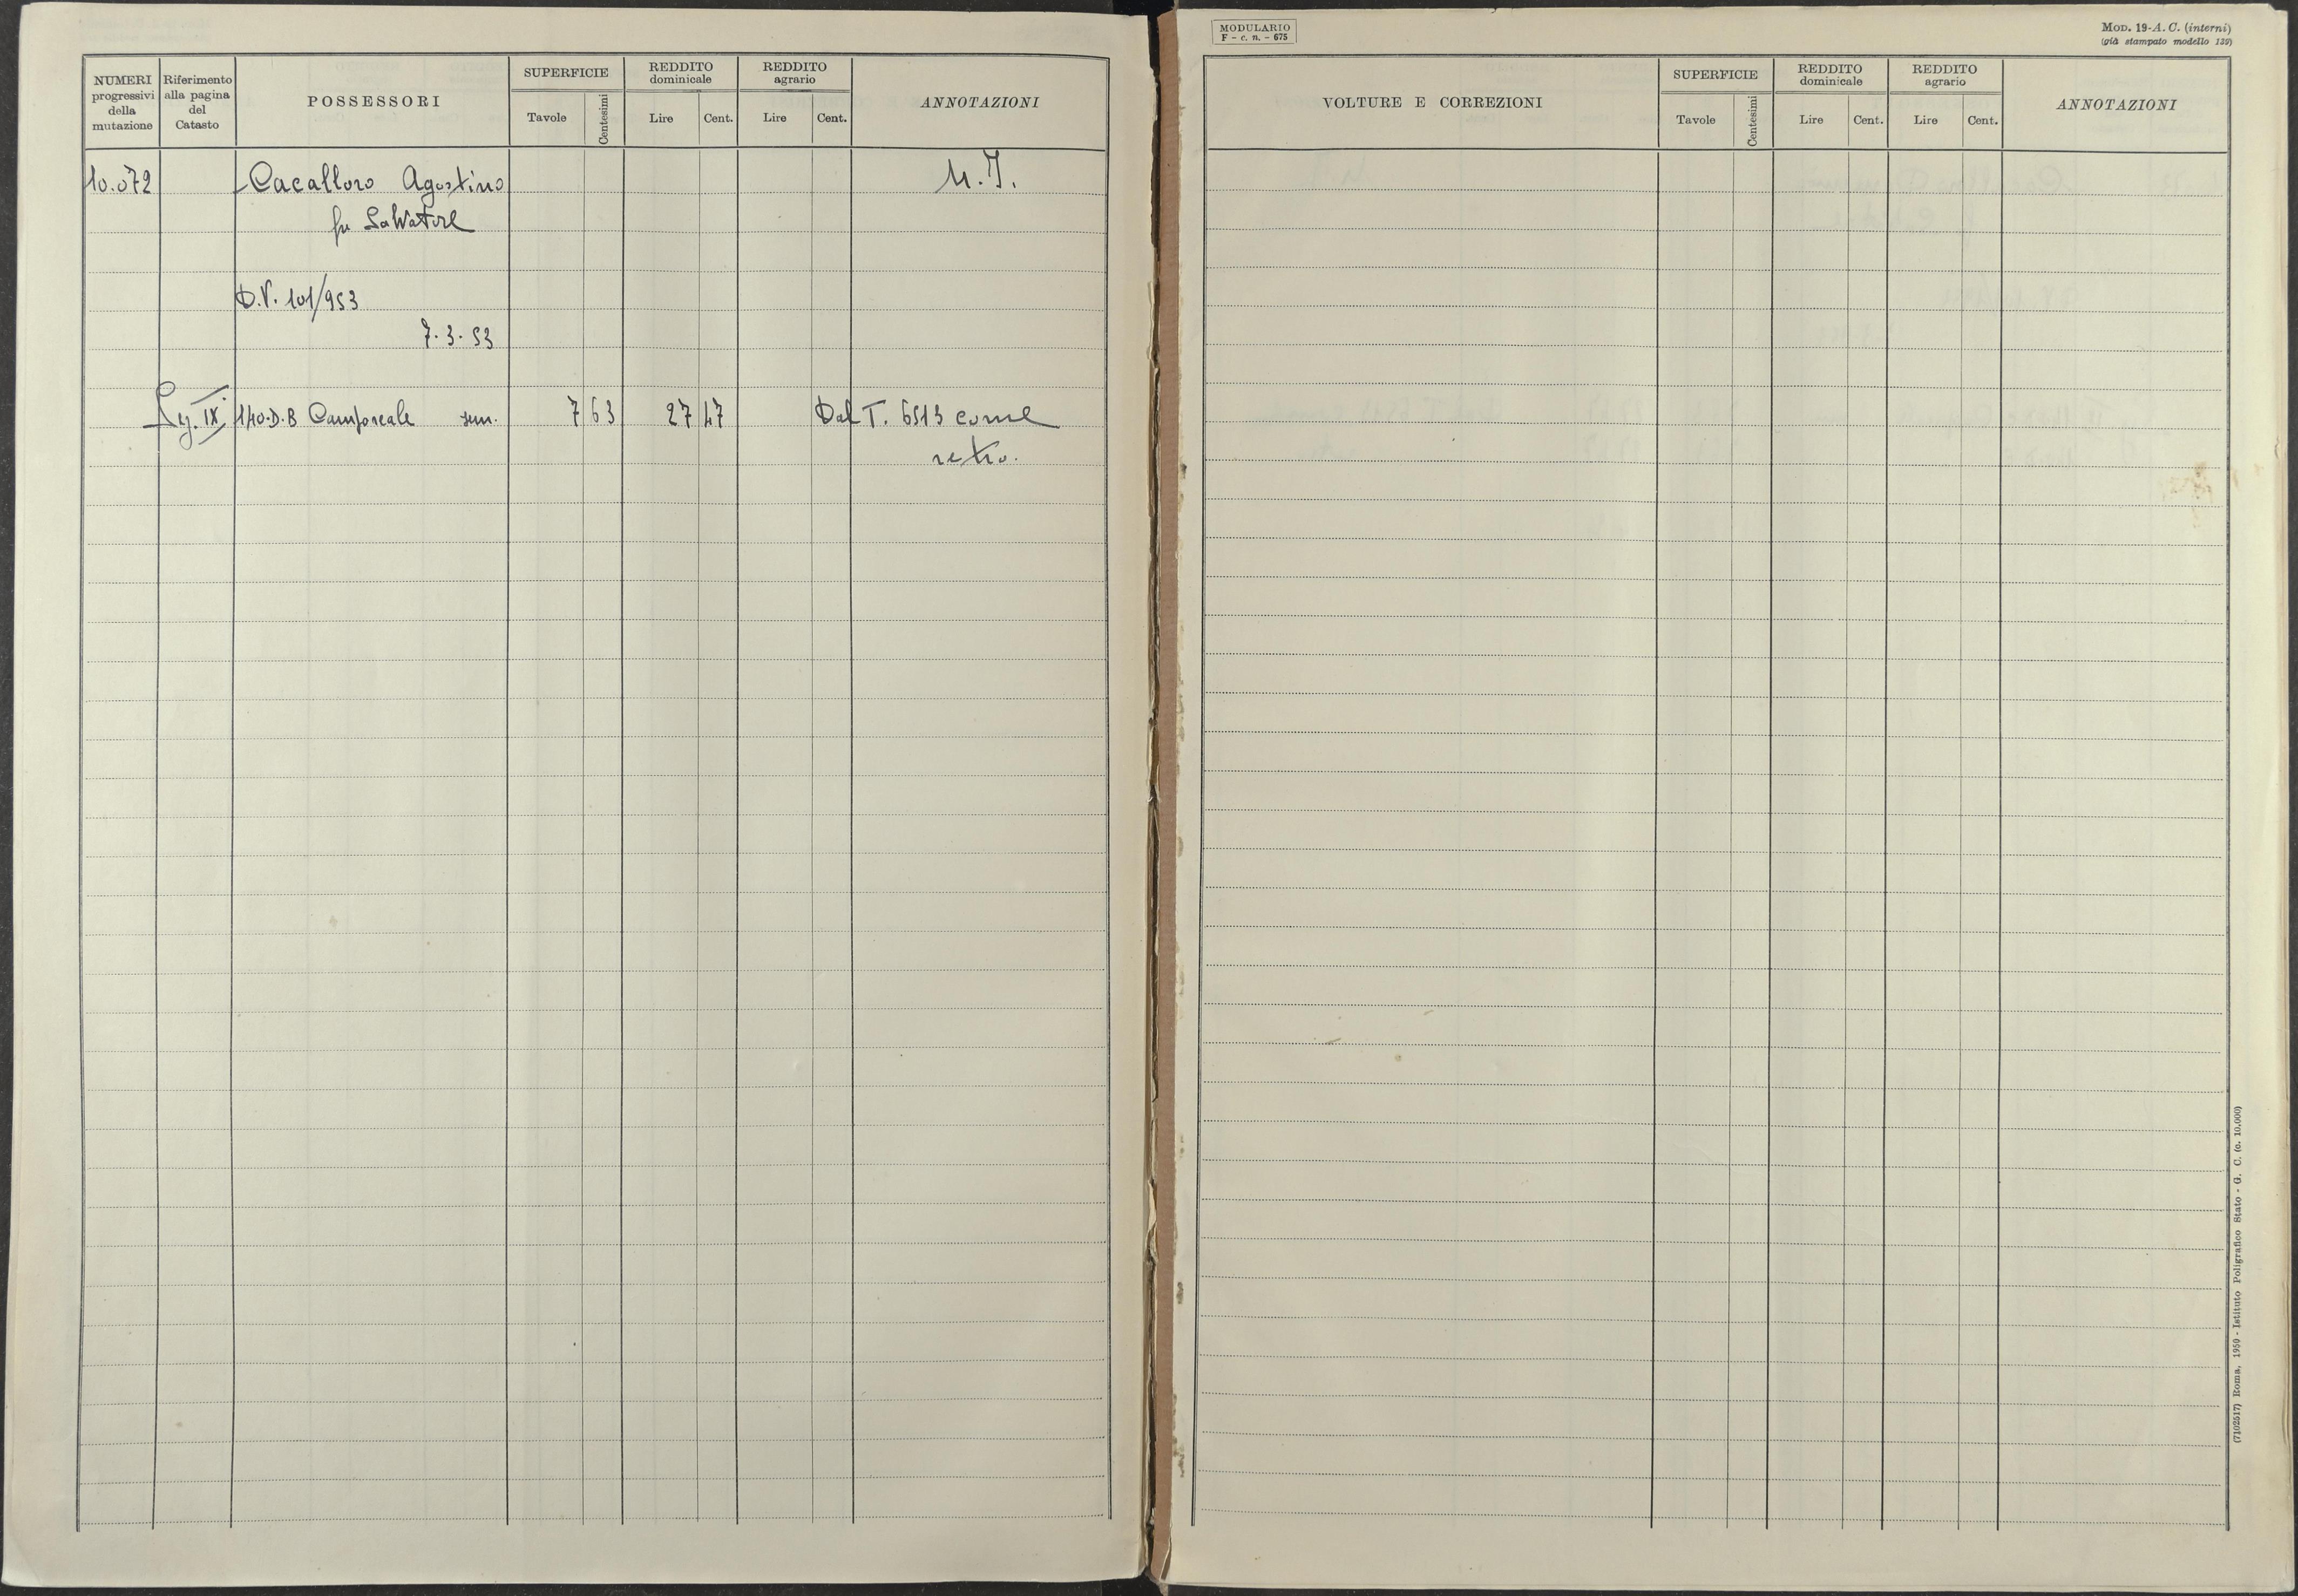 NUMERI
progressivi
della
mutazione
Riferimento
alla pagina
del
Catasto
POSSESSORI
SUPERFICIE
Tavole
Centesimi
REDDITO
dominicale
Lire
Cent.
REDDITO
agrario
Lire
Cent.
ANNOTAZIONI
10.072 Cacalloro Agostino
fu Salvatore
D.V. 101/953
7.3.53
IX 140.D.B Camporeale sem. 7 63 27 47 Dal T. 6513 come
retro.
MODULARIO
F - c. n. - 675
MOD. 19-A. C. (interni)
(già stampato modello 139)
VOLTURE E CORREZIONI
SUPERFICIE
Tavole
Centesimi
REDDITO
dominicale
Lire
Cent.
REDDITO
agrario
Lire
Cent.
ANNOTAZIONI
(7102517) Roma, 1950 - Istituto Poligrafico Stato - G. C. (c. 10.000)